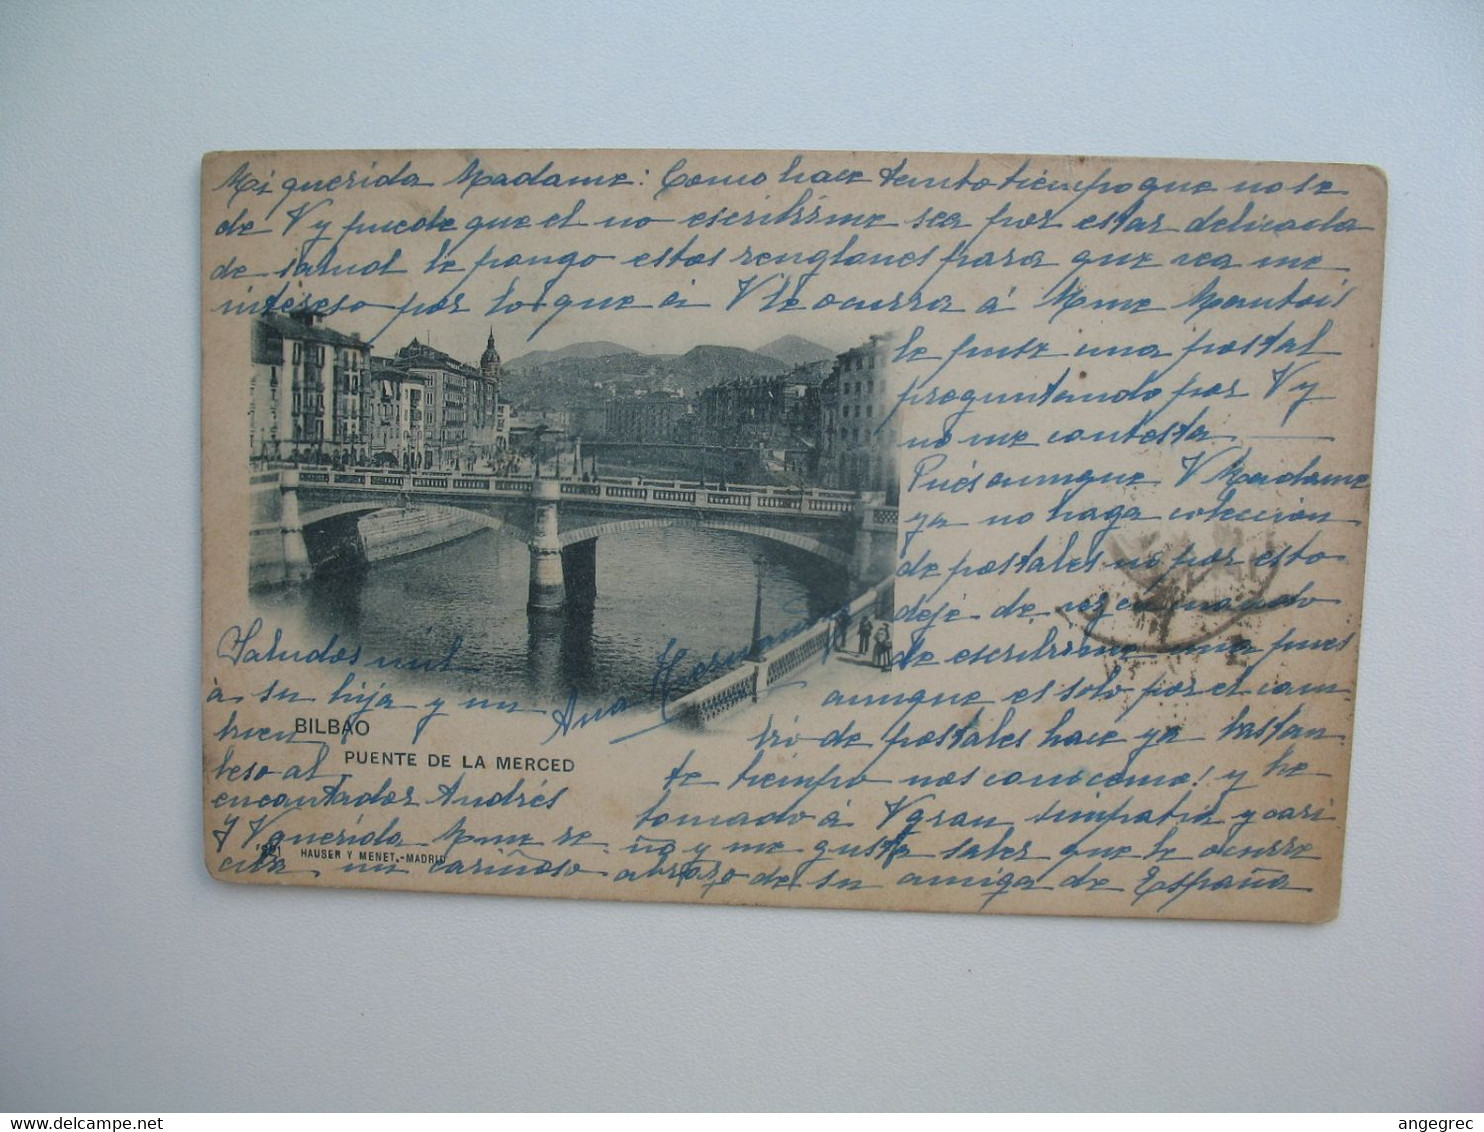 Mi querida Madame: Como hace tanto tiempo que no se
de V y puede que el no escribirme sea por estar delicada
de salud le pongo estos renglones para que vea me
intereso por lo que á V le ocurra á Mme Mautois
le puse una postal
preguntando por V y
no me contesta —
Pués aunque V Madame
ya no haga colección
de postales no por esto
deje de vez en cuando
de escribirme una pues
aunque es solo por el cam
bio de postales hace ya bastan
te tiempo nos conocemos! y he
tomado á V gran simpatia y cari
ño y me gusta saber que le ocurre
Saludos mil
á su hija y un
buen
beso al
encantador Andrés
Y V querida Mme re
ciba un cariñoso abrazo de su amiga de España
Ana
BILBAO
PUENTE DE LA MERCED
HAUSER Y MENET.-MADRID
delcampe.net
angegrec